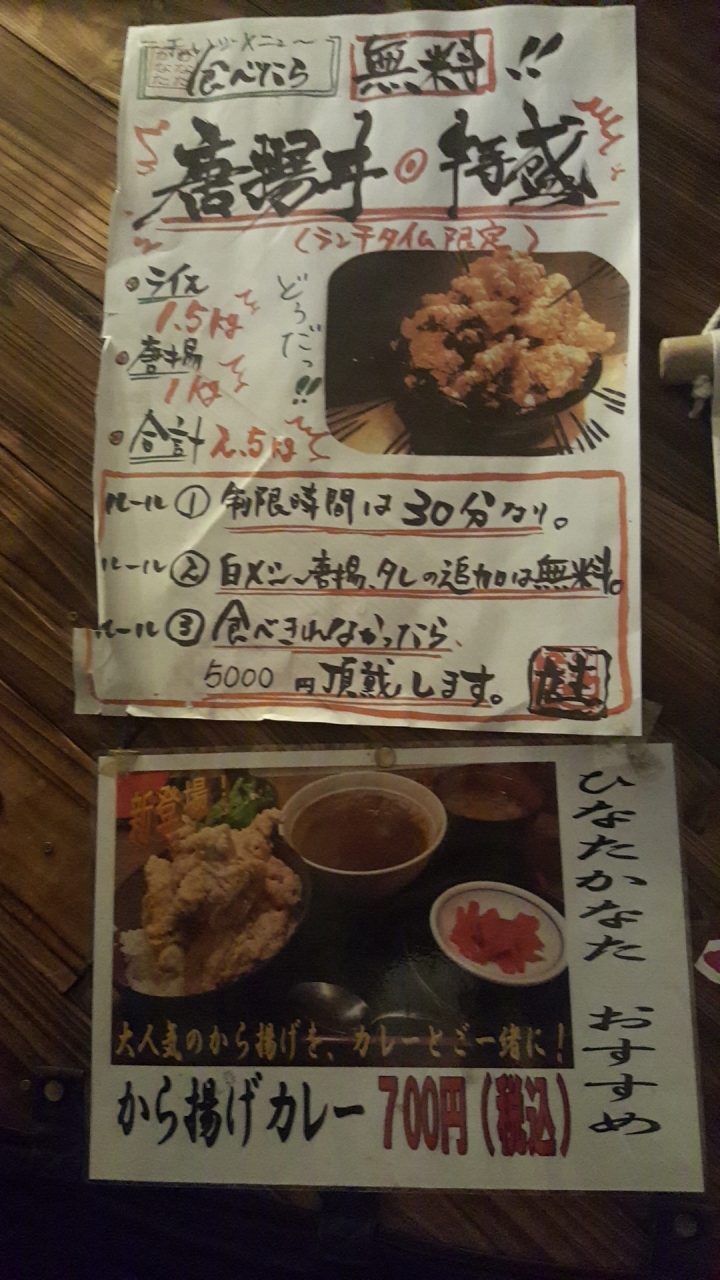 チャレンジメニュー〜
ひなたかなた
食べたら 無料!!
唐揚丼◎特盛
(ランチタイム限定)
ライス
1.5kg
唐揚
1kg
合計 2.5kg
どうだっ!!
ルール① 制限時間は30分なり。
ルール② 白メシ、唐揚、タレの追加は無料。
ルール③ 食べきれなかったら、
5000円頂戴します。
新登場!
大人気のから揚げを、カレーとご一緒に!
から揚げカレー 700円(税込)
ひなたかなた おすすめ